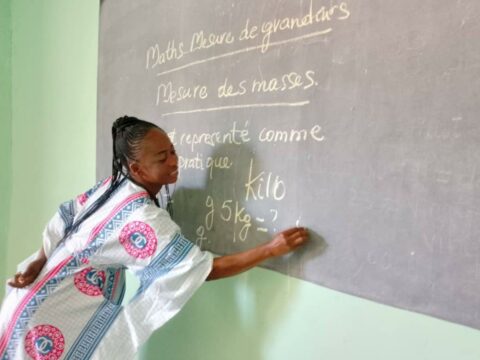 Maths Mesure de grandeurs
Mesure des masses.
représenté comme
pratique
Kilo
g 5 Kg = ?
g